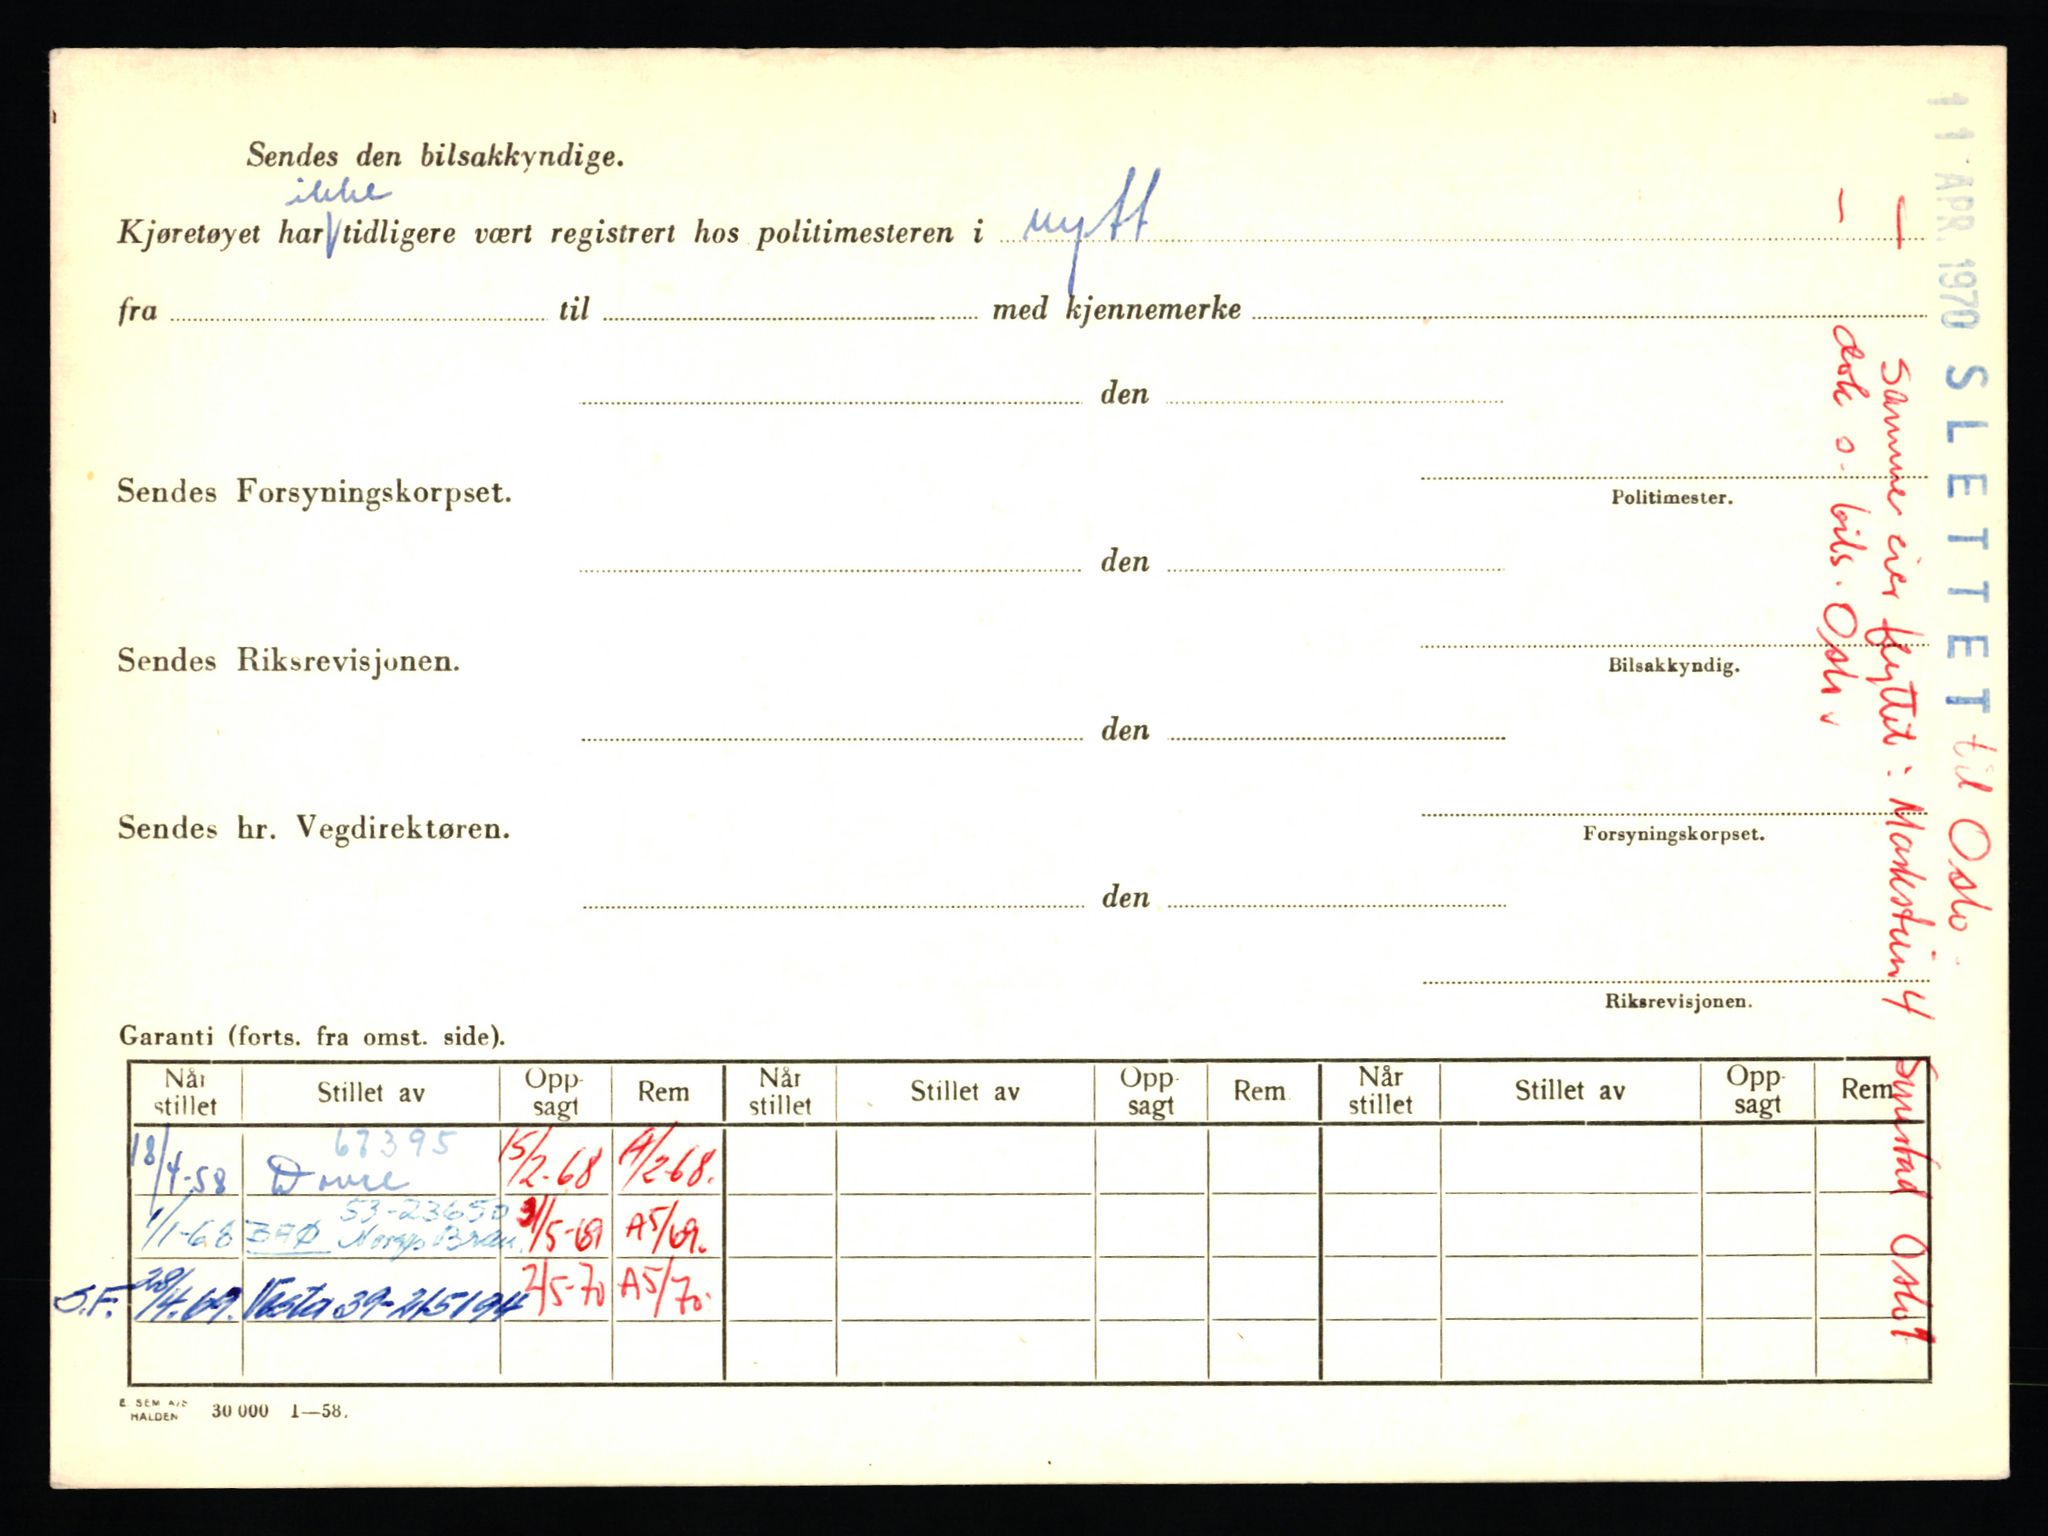 Sendes den bilsakkyndige.
ikke
Kjøretøyet har tidligere vært registrert hos politimesteren i nytt
fra til med kjennemerke
den
Politimester.
Sendes Forsyningskorpset.
den
Bilsakkyndig.
Sendes Riksrevisjonen.
den
Forsyningskorpset.
Sendes hr. Vegdirektøren.
den
Riksrevisjonen.
Garanti (forts. fra omst. side).
Når stillet Stillet av Opp- sagt Rem Når stillet Stillet av Opp- sagt Rem Når stillet Stillet av Opp- sagt Rem
18/4-58 Dovre 67395 15/2-68 A/2-68.
1/1-68 53-23650 Norges Bran. /5-69 A5/69.
S.F. 28/4.69. Vesta 39-215194 2/5-70 A5/70.
E. SEM A/S HALDEN 30 000 1—58.
11 APR. 1970 SLETTET til Oslo.
— Samme eier flyttet: Markestuin 4 Smestad Oslo 1
— dok s. bils. Oslo